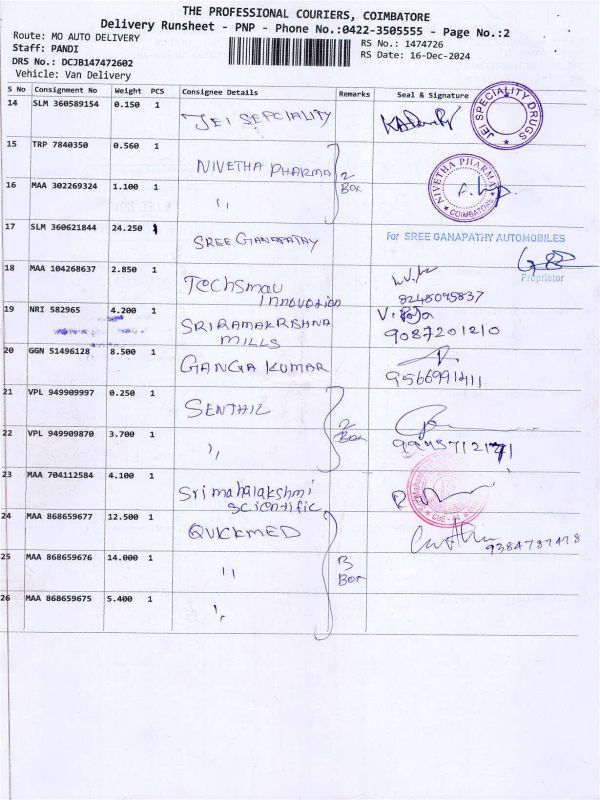 THE PROFESSIONAL COURIERS, COIMBATORE
Delivery Runsheet - PNP - Phone No.:0422-3505555 - Page No.:2
Route: MO AUTO DELIVERY
RS No.: 1474726
Staff: PANDI
RS Date: 16-Dec-2024
DRS No.: DCJB147472602
Vehicle: Van Delivery
S No Consignment No Weight PCS Consignee Details Remarks Seal & Signature
14 SLM 360589154 0.150 1 JEI SEPCIALITY JEI SPECIALITY DRUGS
15 TRP 7840350 0.560 1 NIVETHA PHARMA 2 Box NIVETHA PHARMA COIMBATORE
16 MAA 302269324 1.100 1 ''
17 SLM 360621844 24.250 1 SREE GANAPATHY For SREE GANAPATHY AUTOMOBILES
Proprietor
18 MAA 104268637 2.850 1 Techsmau
Innovation 8248095837
19 NRI 582965 4.200 1 SRI RAMAKRISHNA V. Raja
MILLS 9087201210
20 GGN 51496128 8.500 1 GANGA KUMAR 9566991411
21 VPL 949909997 0.250 1 SENTHIL 2 Box
22 VPL 949909870 3.700 1 ''
23 MAA 704112584 4.100 1 Sri mahalakshmi
Scientific
24 MAA 868659677 12.500 1 QUICKMED 9384787478
25 MAA 868659676 14.000 1 '' 3 Box
26 MAA 868659675 5.400 1 ''